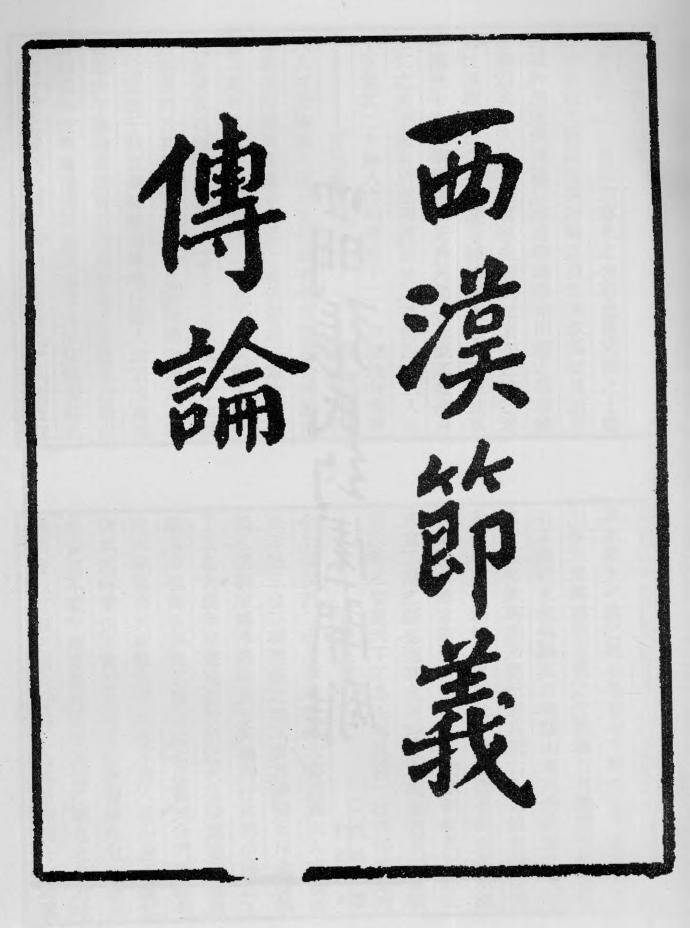 西漢節義
傳論